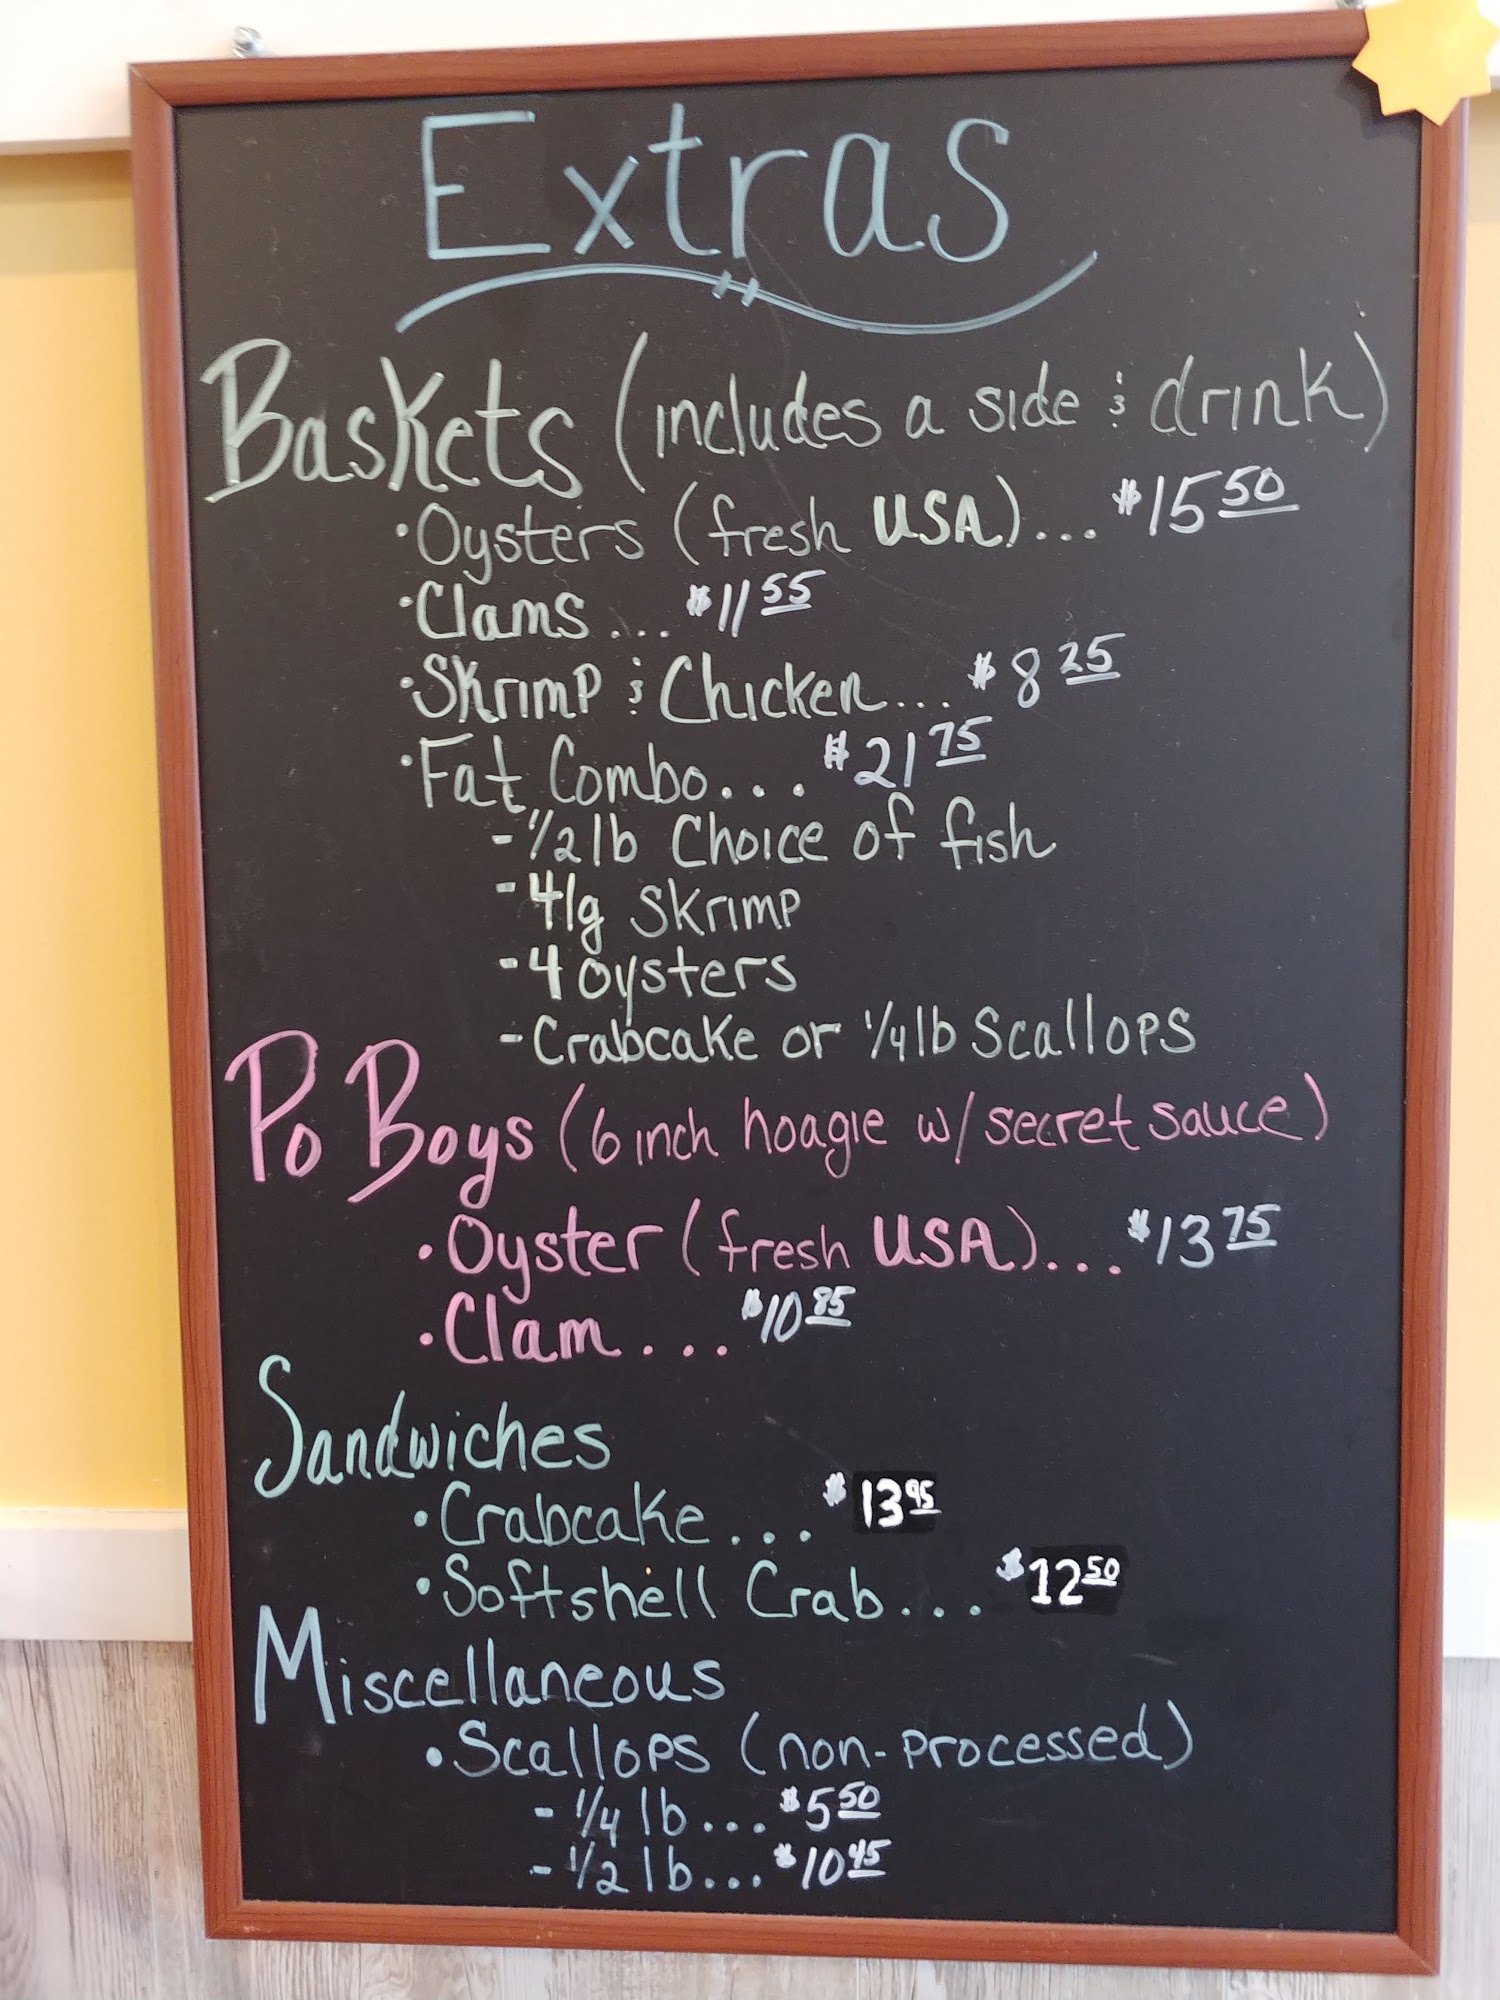 Extras
Baskets (includes a side & drink)
• Oysters (fresh USA)... $15.50
• Clams... $11.55
• Skrimp & Chicken... $8.25
• Fat Combo... $21.75
- 1/2 lb Choice of fish
- 4 lg Skrimp
- 4 oysters
- Crabcake or 1/4 lb Scallops
Po Boys (6 inch hoagie w/ secret sauce)
• Oyster (fresh USA)... $13.75
• Clam... $10.85
Sandwiches
• Crabcake... $13.95
• Softshell Crab... $12.50
Miscellaneous
• Scallops (non-processed)
- 1/4 lb... $5.50
- 1/2 lb... $10.45